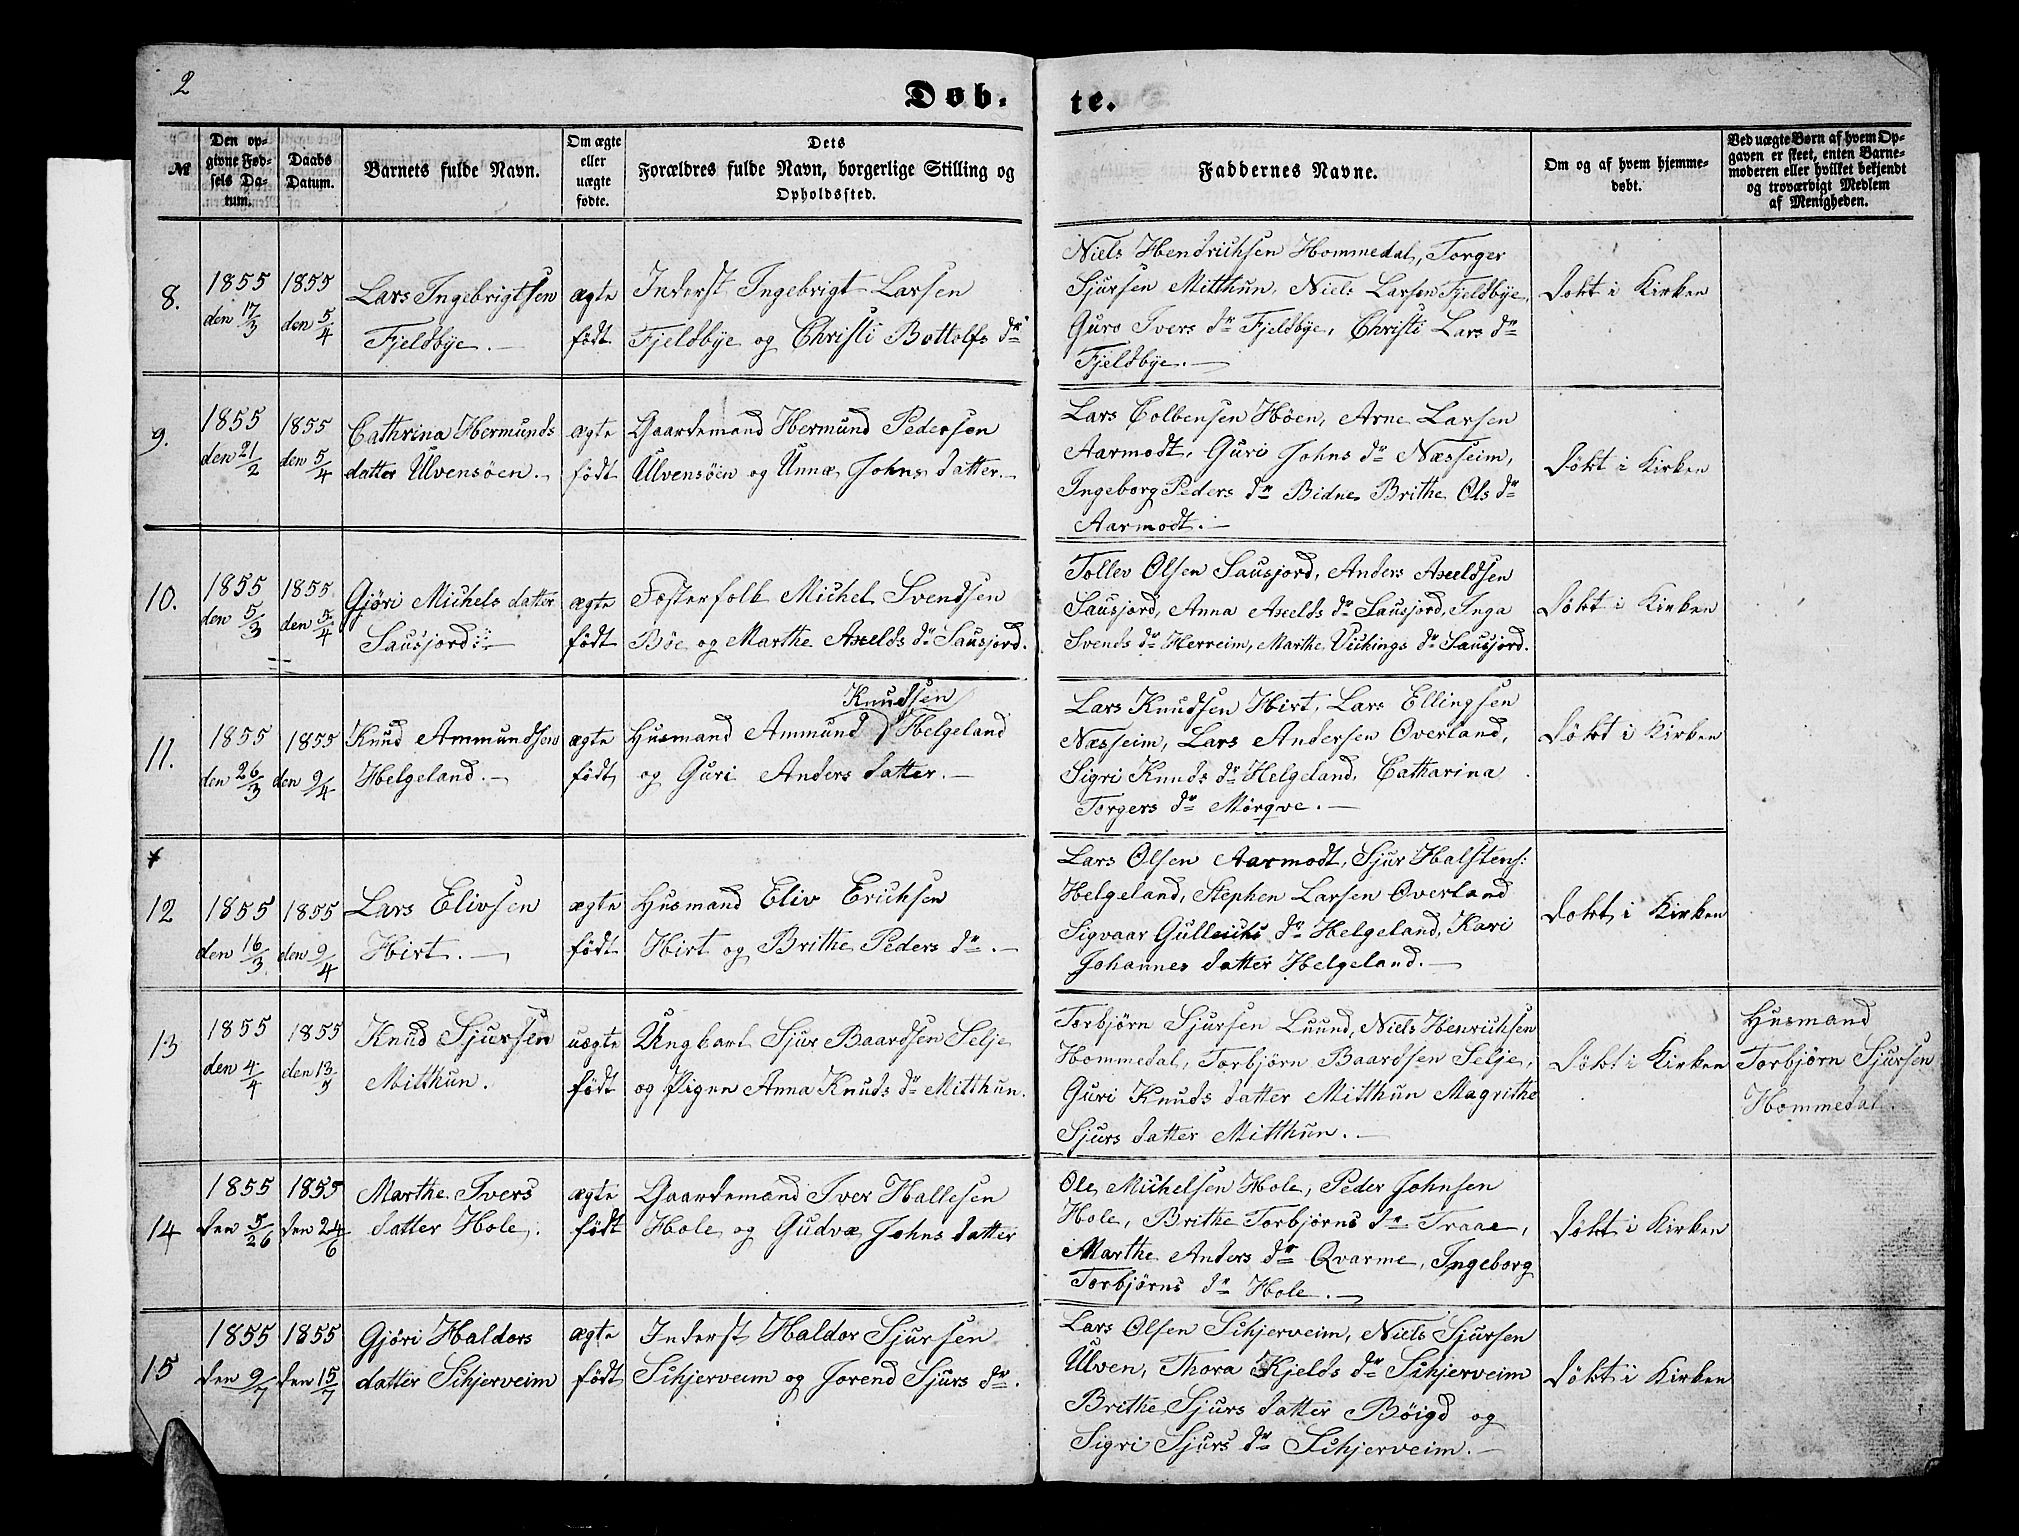 2
Døb-
te.
№
Den op-
givne Fød-
sels Da-
tum.
Daabs
Datum.
Barnets fulde Navn.
Om ægte
eller
uægte
fødte.
Dets
Forældres fulde Navn, borgerlige Stilling og
Opholdssted.
Faddernes Navne.
Om og af hvem hjemme-
døbt.
Ved uægte Børn af hvem Op-
gaven er skeet, enten Barne-
moderen eller hvilket bekjendt
og troværdigt Medlem
af Menigheden.
8.
1855
den 17/3
1855
den 5/4
Lars Ingebrigtsen
Fjeldbye.
ægte
født
Inderst Ingebrigt Larsen
Fjeldbye og Christi Bottolfs dr
Niels Hendrichsen Hommedal, Torger
Sjursen Mitthun, Niels Larsen Fjeldbye,
Guro Ivers dr Fjeldbye, Christi Lars dr
Fjeldbye.
Døbt i Kirken
9.
1855
den 21/2
1855
den 5/4
Cathrina Hermunds
datter Ulvensöen.
ægte
födt
Gaardemand Hermund Pedersen
Ulvensöen og Unnæ Johns datter.
Lars Colbensen Höen, Arne Larsen
Aarmodt, Guri Johns dr Næsseim,
Ingeborg Peders dr Bidne Brithe Ols dr
Aarmodt.
Døbt i Kirken
10.
1855
den 5/3
1855
den 5/4
Gjöri Michels datter
Sausjord.
ægte
födt
Fosterfolk Michel Svendsen
Böe og Marthe Axelds dr Sausjord.
Tollev Olsen Sausjord, Anders Axeldsen
Sausjord, Anna Axelds dr Sausjord, Inga
Svends dr Herreim, Marthe Vickings dr Sausjord.
Døbt i Kirken
11.
1855
den 26/3
1855
den 9/4
Knud Ammundsen
Helgeland.
ægte
födt
Knudsen
Husmand Ammund Helgeland
og Guri Anders datter.
Lars Knudsen Hirt, Lars Ellingsen
Næsseim, Lars Andersen Overland,
Sigri Knuds dr Helgeland, Catharina
Torgers dr Mørqve.
Døbt i Kirken
12
1855
den 16/3
1855
den 9/4
Lars Elivsen
Hirt.
ægte
födt
Husmand Eliv Erichsen
Hirt og Brithe Peders dr.
Lars Olsen Aarmodt, Sjur Halstens:
Helgeland, Stephen Larsen Overland
Sigvaar Gulleichs dr Helgeland, Kari
Johannes datter Helgeland.
Døbt i Kirken
13
1855
den 4/4
1855
den 13/5
Knud Sjursen
Mitthun.
uægte
födt
Ungkarl Sjur Baardsen Selje
og Pigen Anna Knuds dr Mitthun.
Torbjörn Sjursen Luund, Niels Henrichsen
Hommedal, Torbjörn Baardsen Selje,
Guri Knuds datter Mitthun Magrithe
Sjurs datter Mitthun.
Døbt i Kirken
Husmand
Torbjörn Sjursen
Hommedal.
14
1855
den 5/26
1855
den 24/6
Marthe Ivers
datter Hole.
ægte
födt
Gaardemand Iver Hallesen
Hole og Gudvæ Johns datter
Ole Michelsen Hole, Peder Johnsen
Hole, Brithe Torbjörns dr Traae,
Marthe Anders dr Qvarme, Ingeborg
Torbjørns dr Hole.
Døbt i Kirken
15
1855
den 9/7
1855
den 15/7
Gjöri Haldors
datter Schjerveim
ægte
födt
Inderst Haldor Sjursen
Schjerveim og Jorend Sjurs dr.
Lars Olsen Schjerveim, Niels Sjursen
Ulven, Thora Kjelds dr Schjerveim
Brithe Sjurs datter Böigd og
Sigri Sjurs dr Schjerveim.
Døbt i Kirken